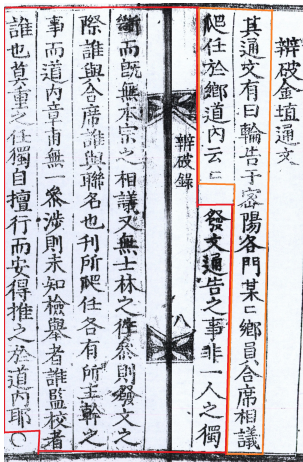 辨破金埴通文
其通文有曰輪告于密陽各門某〻鄉員合席相議
爬任於鄉道內云〻
發文通告之事非一人之獨
辨破錄
八
斷而旣無本宗之相議又無士林之伻叅則發文之
際誰與合席誰與聯名也刊所爬任各有所主幹之
事而道內章甫無一叅涉則未知檢擧者誰監校者
誰也莫重之任獨自擅行而安得推之於道內耶○